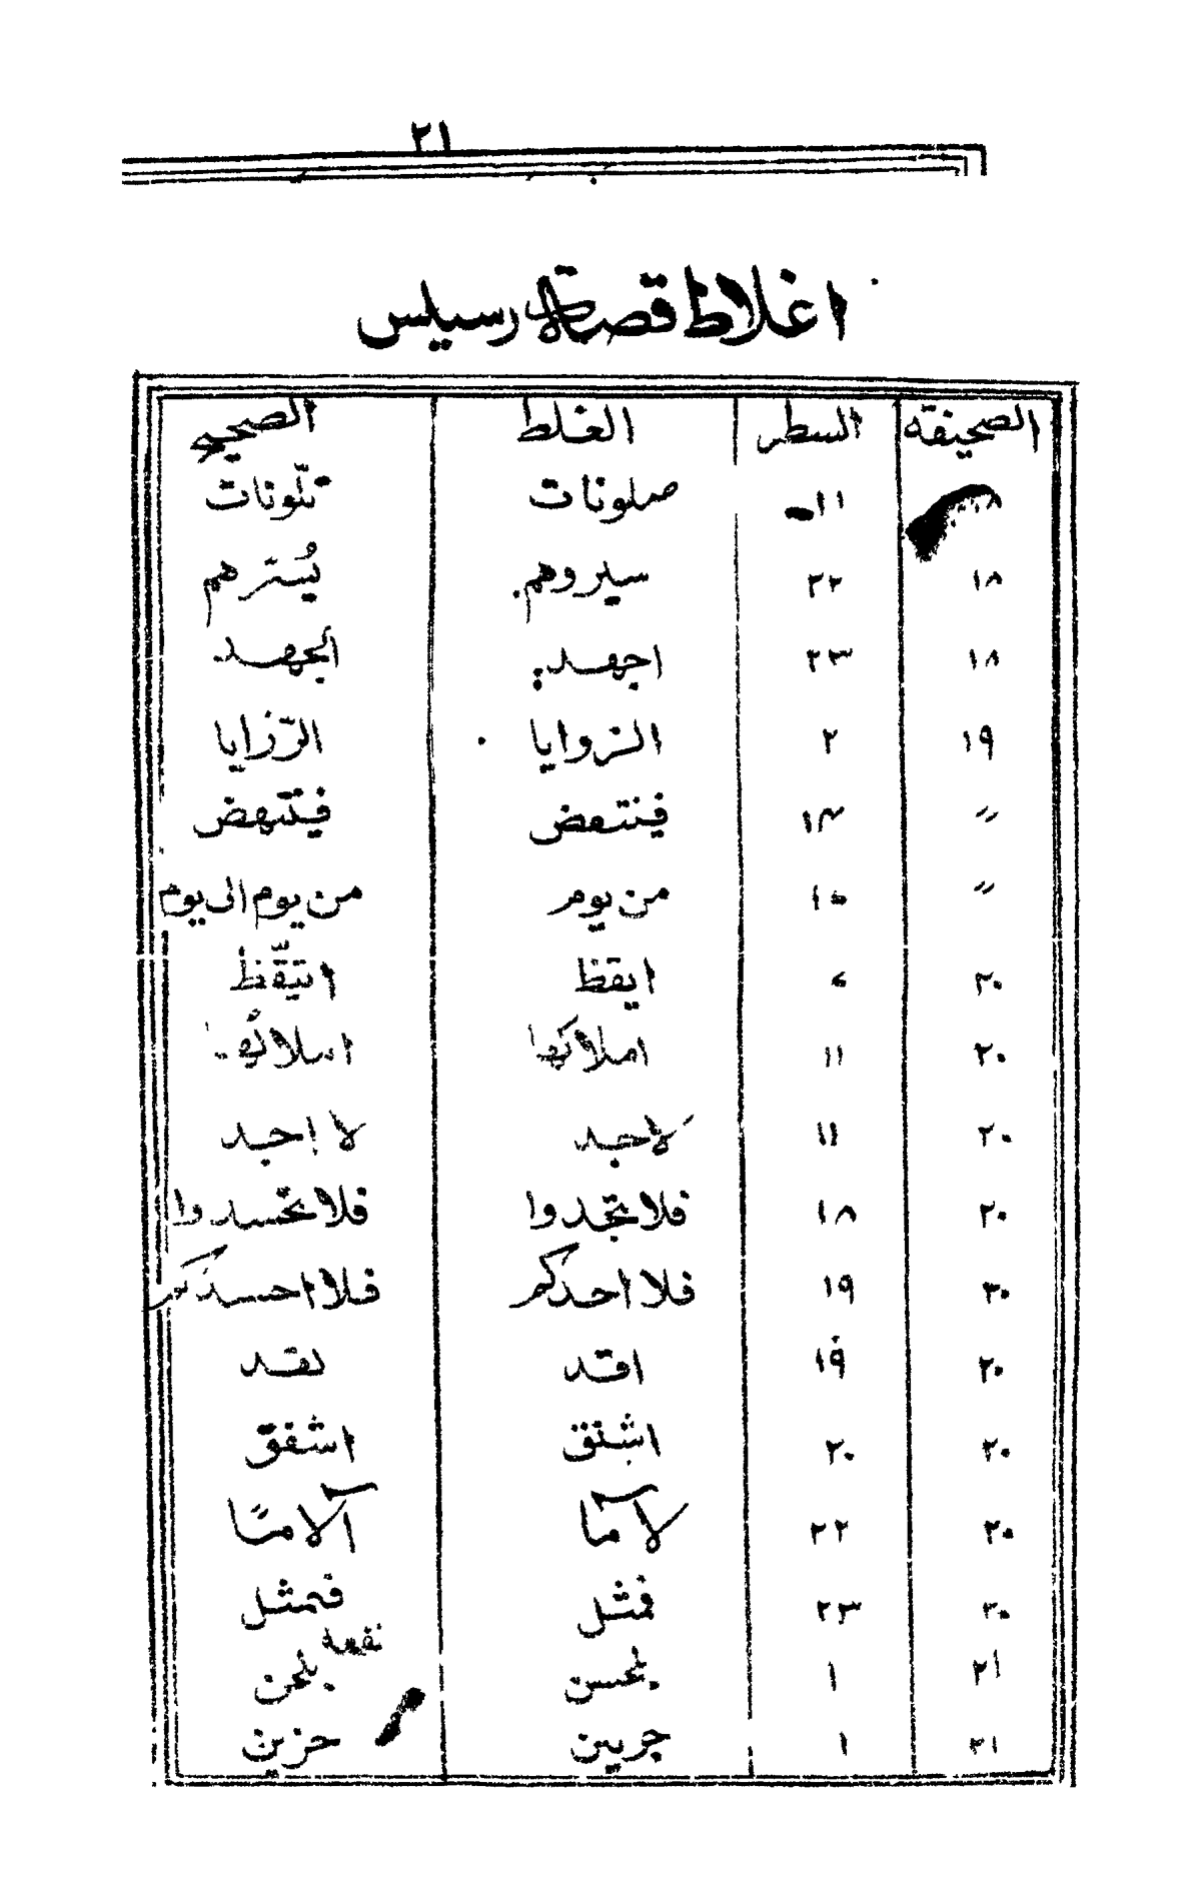 ٢١
اغلاط قصة لارسيلس
الصحيفة السطر الغلط الصحيح
١٨ ١١ صلونات تلّونات
١٨ ٢٢ سيروهم يُسترهم
١٨ ٢٣ اجهد الجهد
١٩ ٢ الزوايا الرّزايا
〃 ١٣ فينتهض فيتنهض
〃 ١٥ من يوم من يوم الى يوم
٢٠ ايقظ اتيقّظ
٢٠ ١١ املاكها
٢٠ ١١ لاجد لا اجد
٢٠ ١٨ فلا تجدوا فلا تحسدوا
٢٠ ١٩ فلا احدكم فلا احسدكم
٢٠ ١٩ اقد لقد
٢٠ ٢٠ اشتق اشفق
٢٠ ٢٢ لآما آلاماً
٢٠ ٢٣ فمثل فهمثل
٢١ ١ بلحسن نغمة بلحن
٢١ ١ جريين حزين